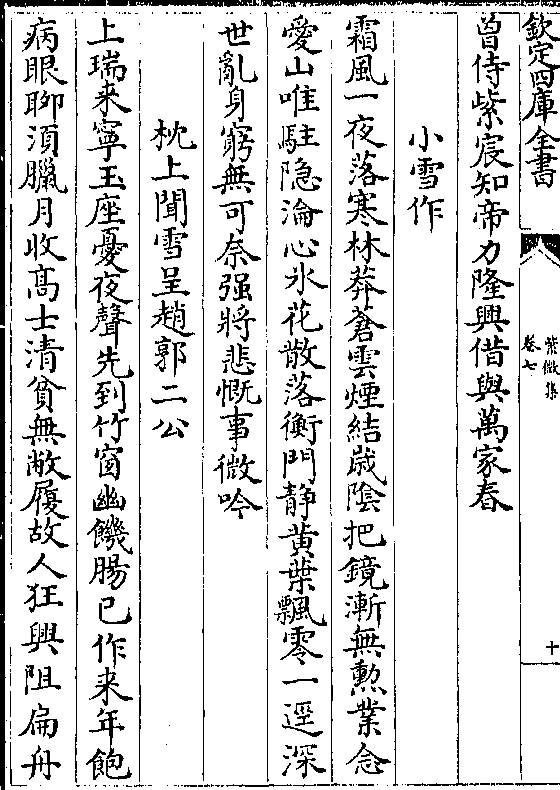 欽定四庫全書
紫微集
卷七
十
曽侍紫宸知帝力隆興借與萬家春
小雪作
霜風一夜落寒林莽蒼雲煙結歲隂把鏡漸無勲業念
愛山唯駐隐淪心氷花散落衡門静黄葉飄零一逕深
世亂身窮無可奈强將悲慨事微吟
枕上聞雪呈趙郭二公
上瑞来寧玉座憂夜聲先到竹窗幽饑腸已作来年飽
病眼聊須臘月收髙士清貧無敝履故人狂興阻扁舟